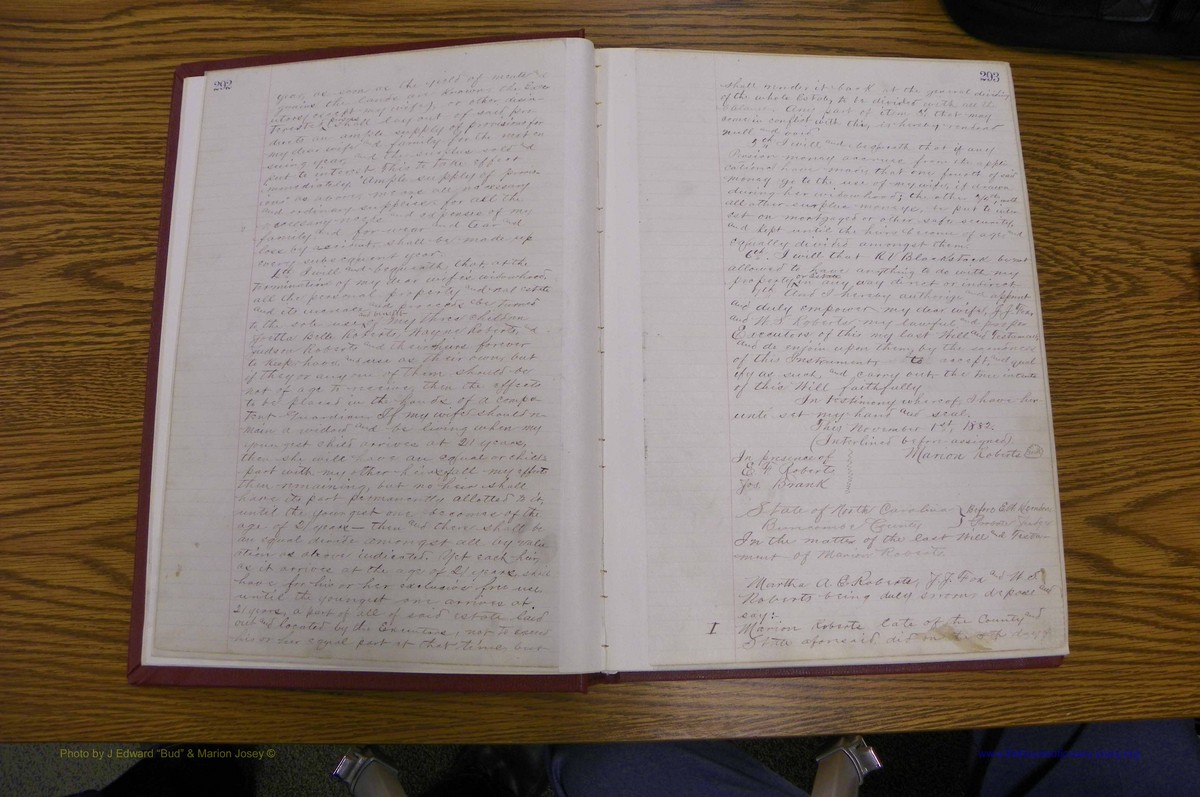 292
year, as soon as the yield of meats and
grains the lands are known the Exe-
cutors with my wife, or other disin-
terested persons shall lay out of said pro-
ducts an ample supply of provision for
my dear wife and family for the next en
suing year, and the surplus sold and
put to interest. This to take effect
immediately. Ample supply of provis-
ions as above means all necessary
and ordinary supplies for all the
necessary and expenses of my
family and for wear and tear and
loss by accident shall be made up
every subsequent year.
4th I will and bequeath, that at the
termination of my dear wife's widowhood
all the personal property and real estate
and its increase and proceeds be turned
to the sole use of my three children
Belle Roberts, Wayne Roberts, and
Judson Roberts and their heirs forever
to keep have and use as their own, but
if they or any one of them should be
not of age to receive, then the effects
to be placed in the hands of a compe
tent Guardian. If my wife should re
main a widow and be living when my
youngest child arrives at 21 years,
then she will have an equal or child's
part with my other heirs of all my effects
then remaining, but no heir shall
have its part permanently allotted to it,
until the youngest one becomes of the
age of 21 years— then and there shall be
an equal divide amongst all by valu
ation as above indicated. Yet each heir,
as it arrives at the age of 21 years shall
have for his or her exclusive free use
until the youngest one arrives at
21 years, a part of all of said estate laid
out and located by the Executors, not to exceed
his or her equal part at that time, but
293
shall render it back at the general divide
of the whole Estate, to be divided with all the
balance. Any part of item that may
come in conflict with this is hereby rendered
null and void.
5th I will and bequeath that if any
Pension money accrues from the appli
cations I have made that one fourth of said
money go to the use of my wife, if a
during her widowhood; the other 3/4 with
all other surplus moneys, be put to inter
est on mortgages or other safe security,
and kept until the heirs become of age and
equally divided amongst them.
6th. I will that R V Blackstock be not
allowed to have anything to do with my
property or Estate in any way direct or indirect
7th And I hereby authorize appoint
and duly empower my dear wife, J. J. Fox
and W. S. Roberts, my lawful and proper
Executors of this my last Will and Testament
and do enjoin upon them, by the
of this Instrument, to accept, and qual
ify as such, and carry out the true intents
of this Will faithfully.
In testimony whereof, I have here
unto set my hand and seal.
This November 1st, 1882.
(Interlined before assigned)
Marion Roberts Seal
In presence of
E. F. Roberts
Jos Brank
State of North Carolina
Buncombe County
} Before
Probate Judge
In the matter of the Last Will and Testa-
ment of Marion Roberts
Martha A E Roberts, J. J. Fox and W. S.
Roberts being duly sworn depose and
say:
I
Marion Roberts late of the County and
State aforesaid died on the day of
Photo by J Edward "Bud" & Marion Josey ©